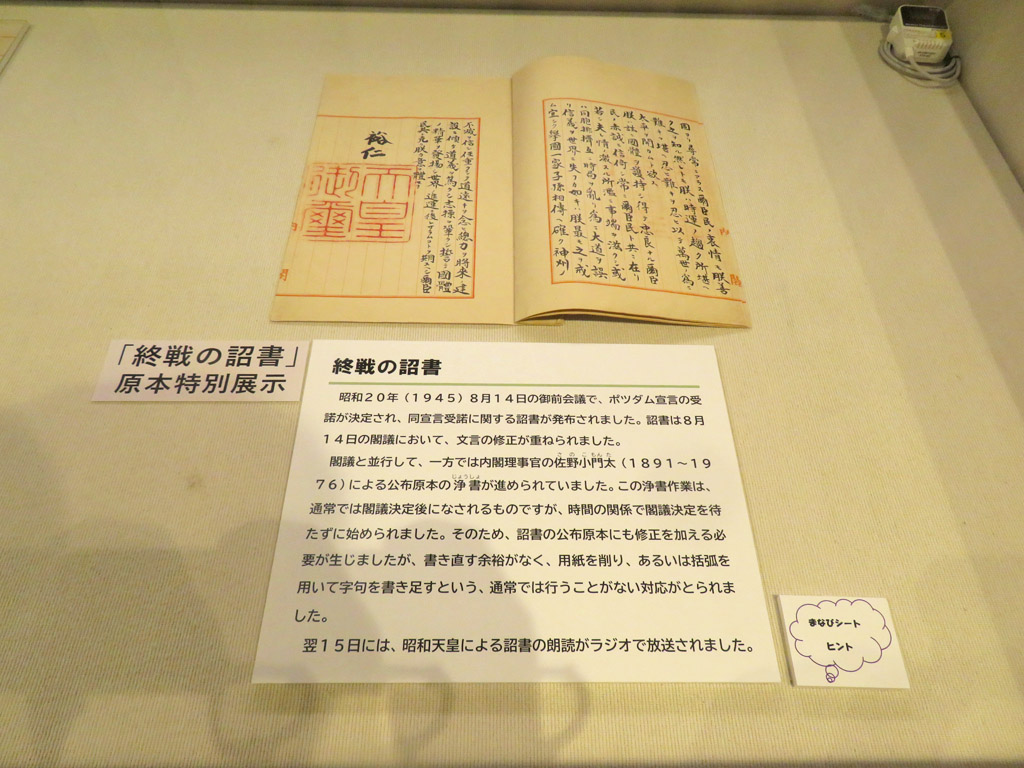 固ヨリ尋常ニアラス爾臣民ノ衷情モ朕善
ク之ヲ知ル然レトモ朕ハ時運ノ趨ク所堪ヘ
難キヲ堪ヘ忍ヒ難キヲ忍ヒ以テ萬世ノ爲ニ
太平ヲ開カムト欲ス
朕ハ茲ニ國體ヲ護持シ得テ忠良ナル爾臣
民ノ赤誠ニ信倚シ常ニ爾臣民ト共ニ在リ
若シ夫レ情ノ激スル所濫ニ事端ヲ滋クシ或
ハ同胞排擠互ニ時局ヲ亂リ爲ニ大道ヲ誤
リ信義ヲ世界ニ失フカ如キハ朕最モ之ヲ戒
ム宜シク擧國一家子孫相傳ヘ確ク神州ノ
内閣
不滅ヲ信シ任重クシテ道遠キヲ念ヒ總力ヲ將來ノ建
設ニ傾ケ道義ヲ篤クシ志操ヲ鞏クシ誓テ國體
ノ精華ヲ發揚シ世界ノ進運ニ後レサラムコトヲ期スヘシ爾臣
民其レ克ク朕カ意ヲ體セヨ
裕仁
天皇
御璽
「終戦の詔書」
原本特別展示
終戦の詔書
昭和20年（1945）8月14日の御前会議で、ポツダム宣言の受
諾が決定され、同宣言受諾に関する詔書が発布されました。詔書は8月
14日の閣議において、文言の修正が重ねられました。
閣議と並行して、一方では内閣理事官の佐野小門太（1891～19
76）による公布原本の浄書が進められていました。この浄書作業は、
通常では閣議決定後になされるものですが、時間の関係で閣議決定を待
たずに始められました。そのため、詔書の公布原本にも修正を加える必
要が生じましたが、書き直す余裕がなく、用紙を削り、あるいは括弧を
用いて字句を書き足すという、通常では行うことがない対応がとられま
した。
翌15日には、昭和天皇による詔書の朗読がラジオで放送されました。
まなびシート
ヒント